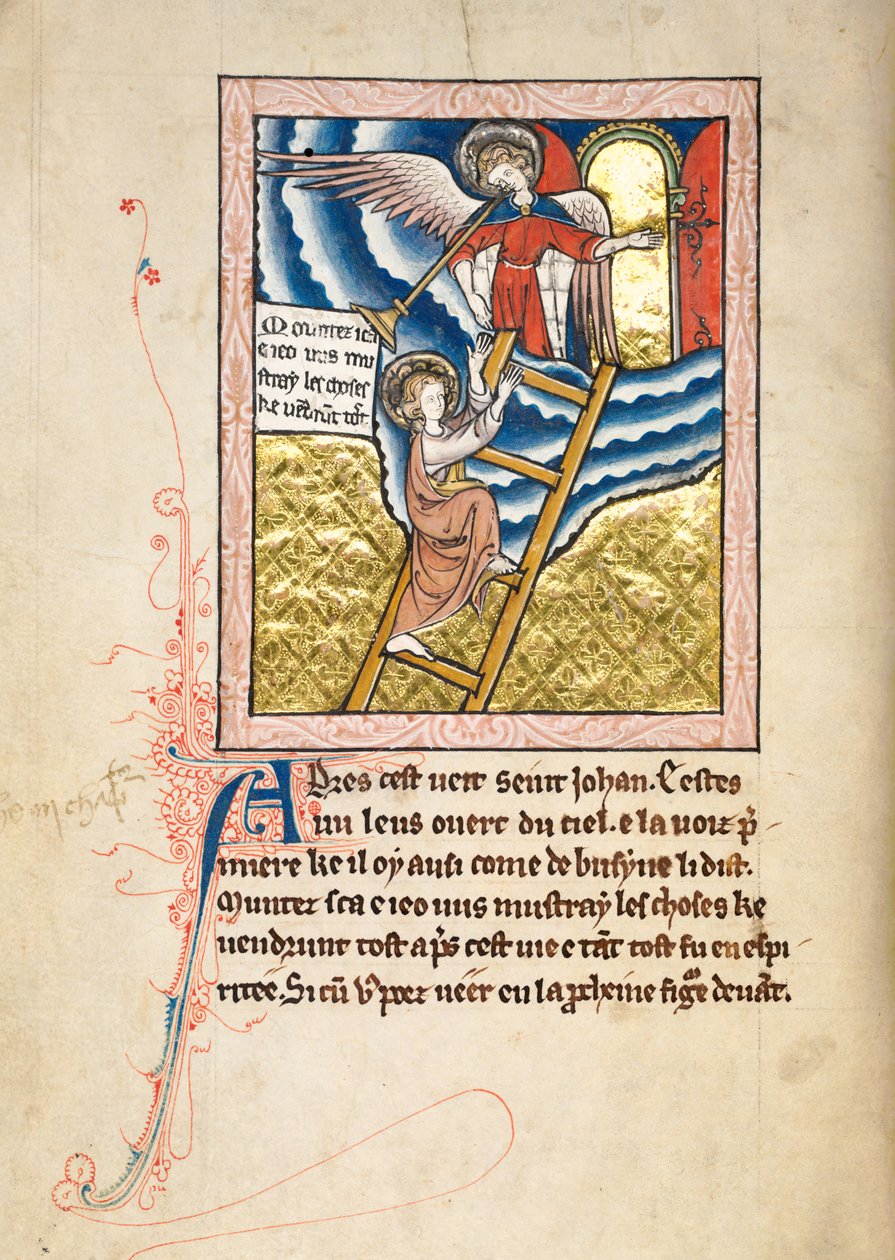 Mounter sca
e ieo uus mu
stray les choses
ke uendrūt tost
Apres cest ueit seint Johan. Cestes
un leus ouert du ciel. e la uoiz p̄
miere ke il oy ausi come de busyne li dist.
Munter sca e ieo uus mustray les choses ke
uendrunt tost ap̄s cest uie e tāt tost fu en espi
ritée. Si cū v̄ poez uéer en la p̄cheine figͣe deuāt.